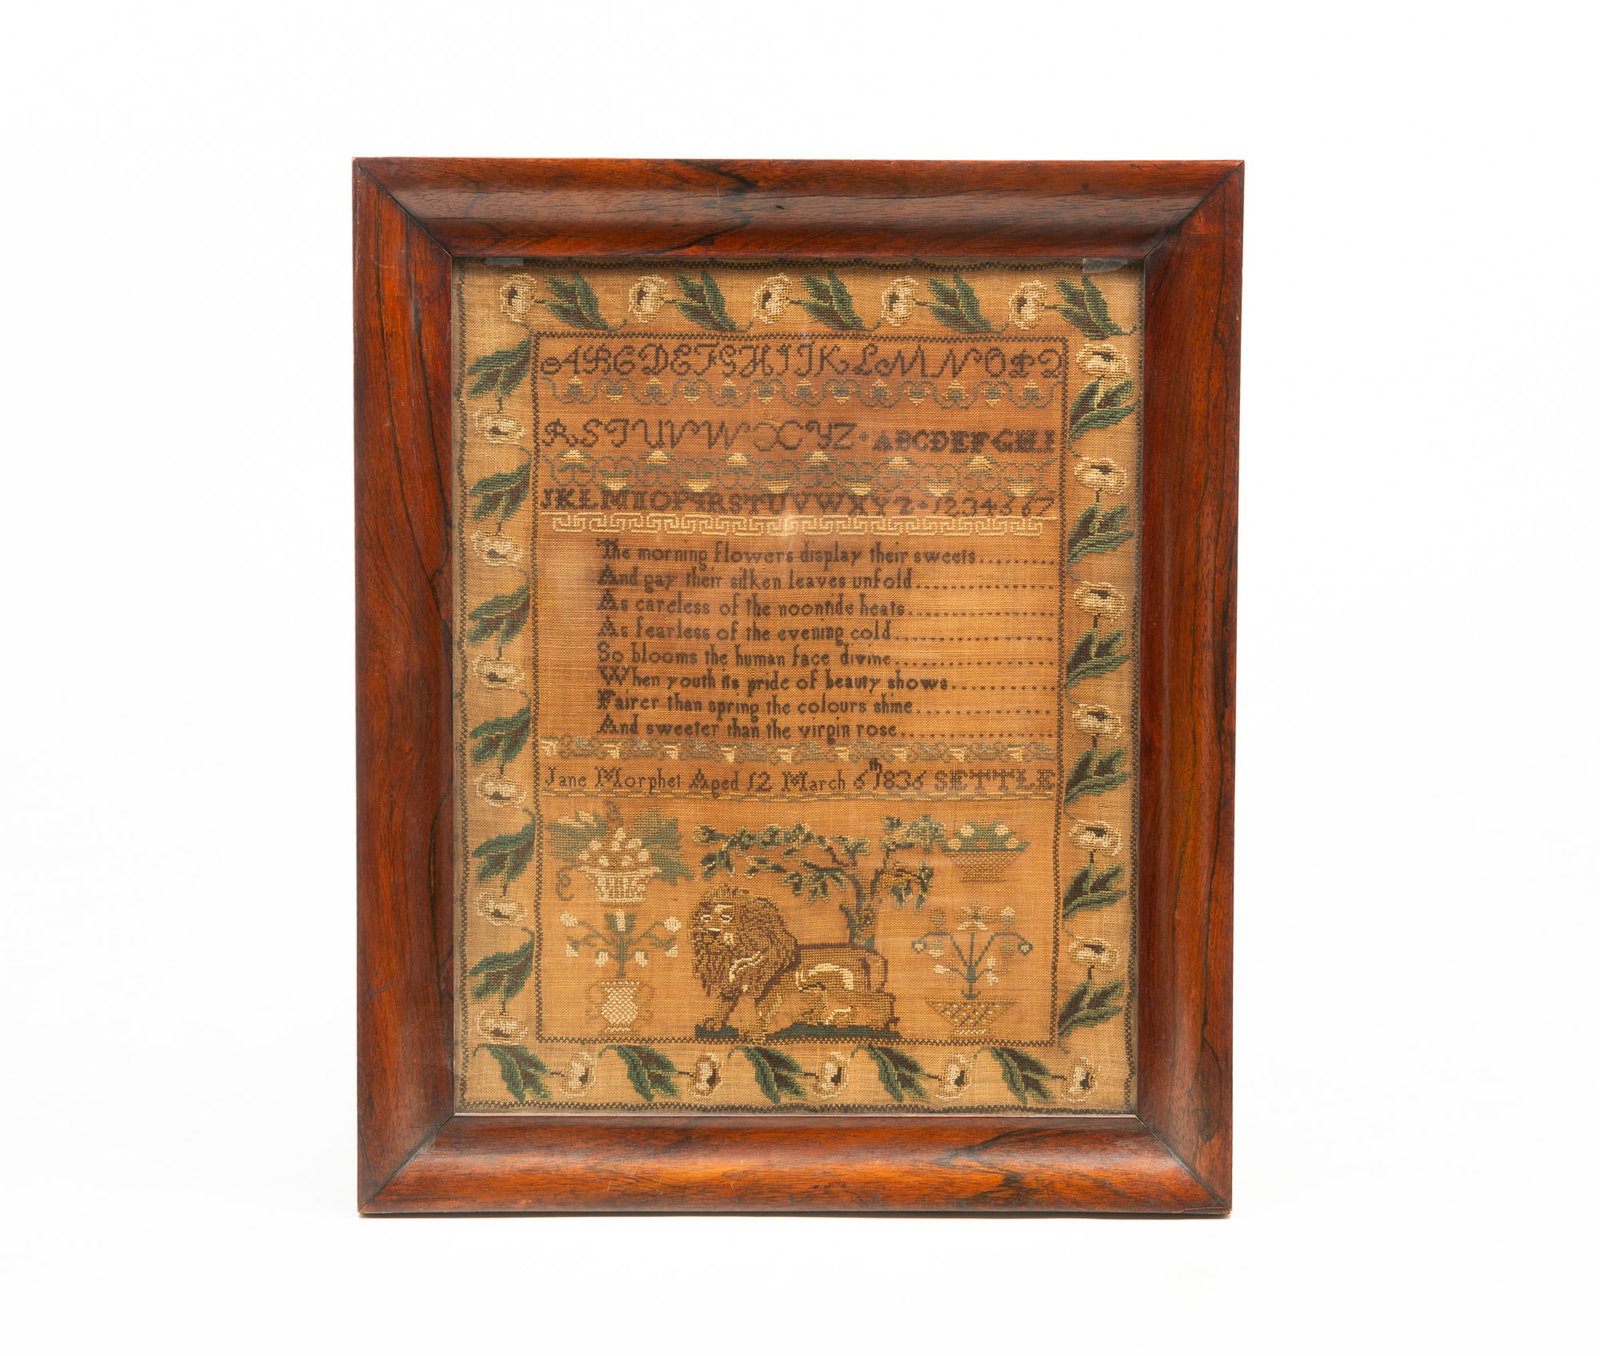 ABCDEFGHIJKLMNOPQ
RSTUVWXYZ ABCDEFGHI
JKLMNOPQRSTUVWXYZ 1234567
The morning flowers display their sweets
And gay their silken leaves unfold
As careless of the noontide heats
As fearless of the evening cold
So blooms the human face divine
When youth its pride of beauty shows
Fairer than spring the colours shine
And sweeter than the virgin rose
Jane Morphet Aged 12 March 6th 1836 SETTLE